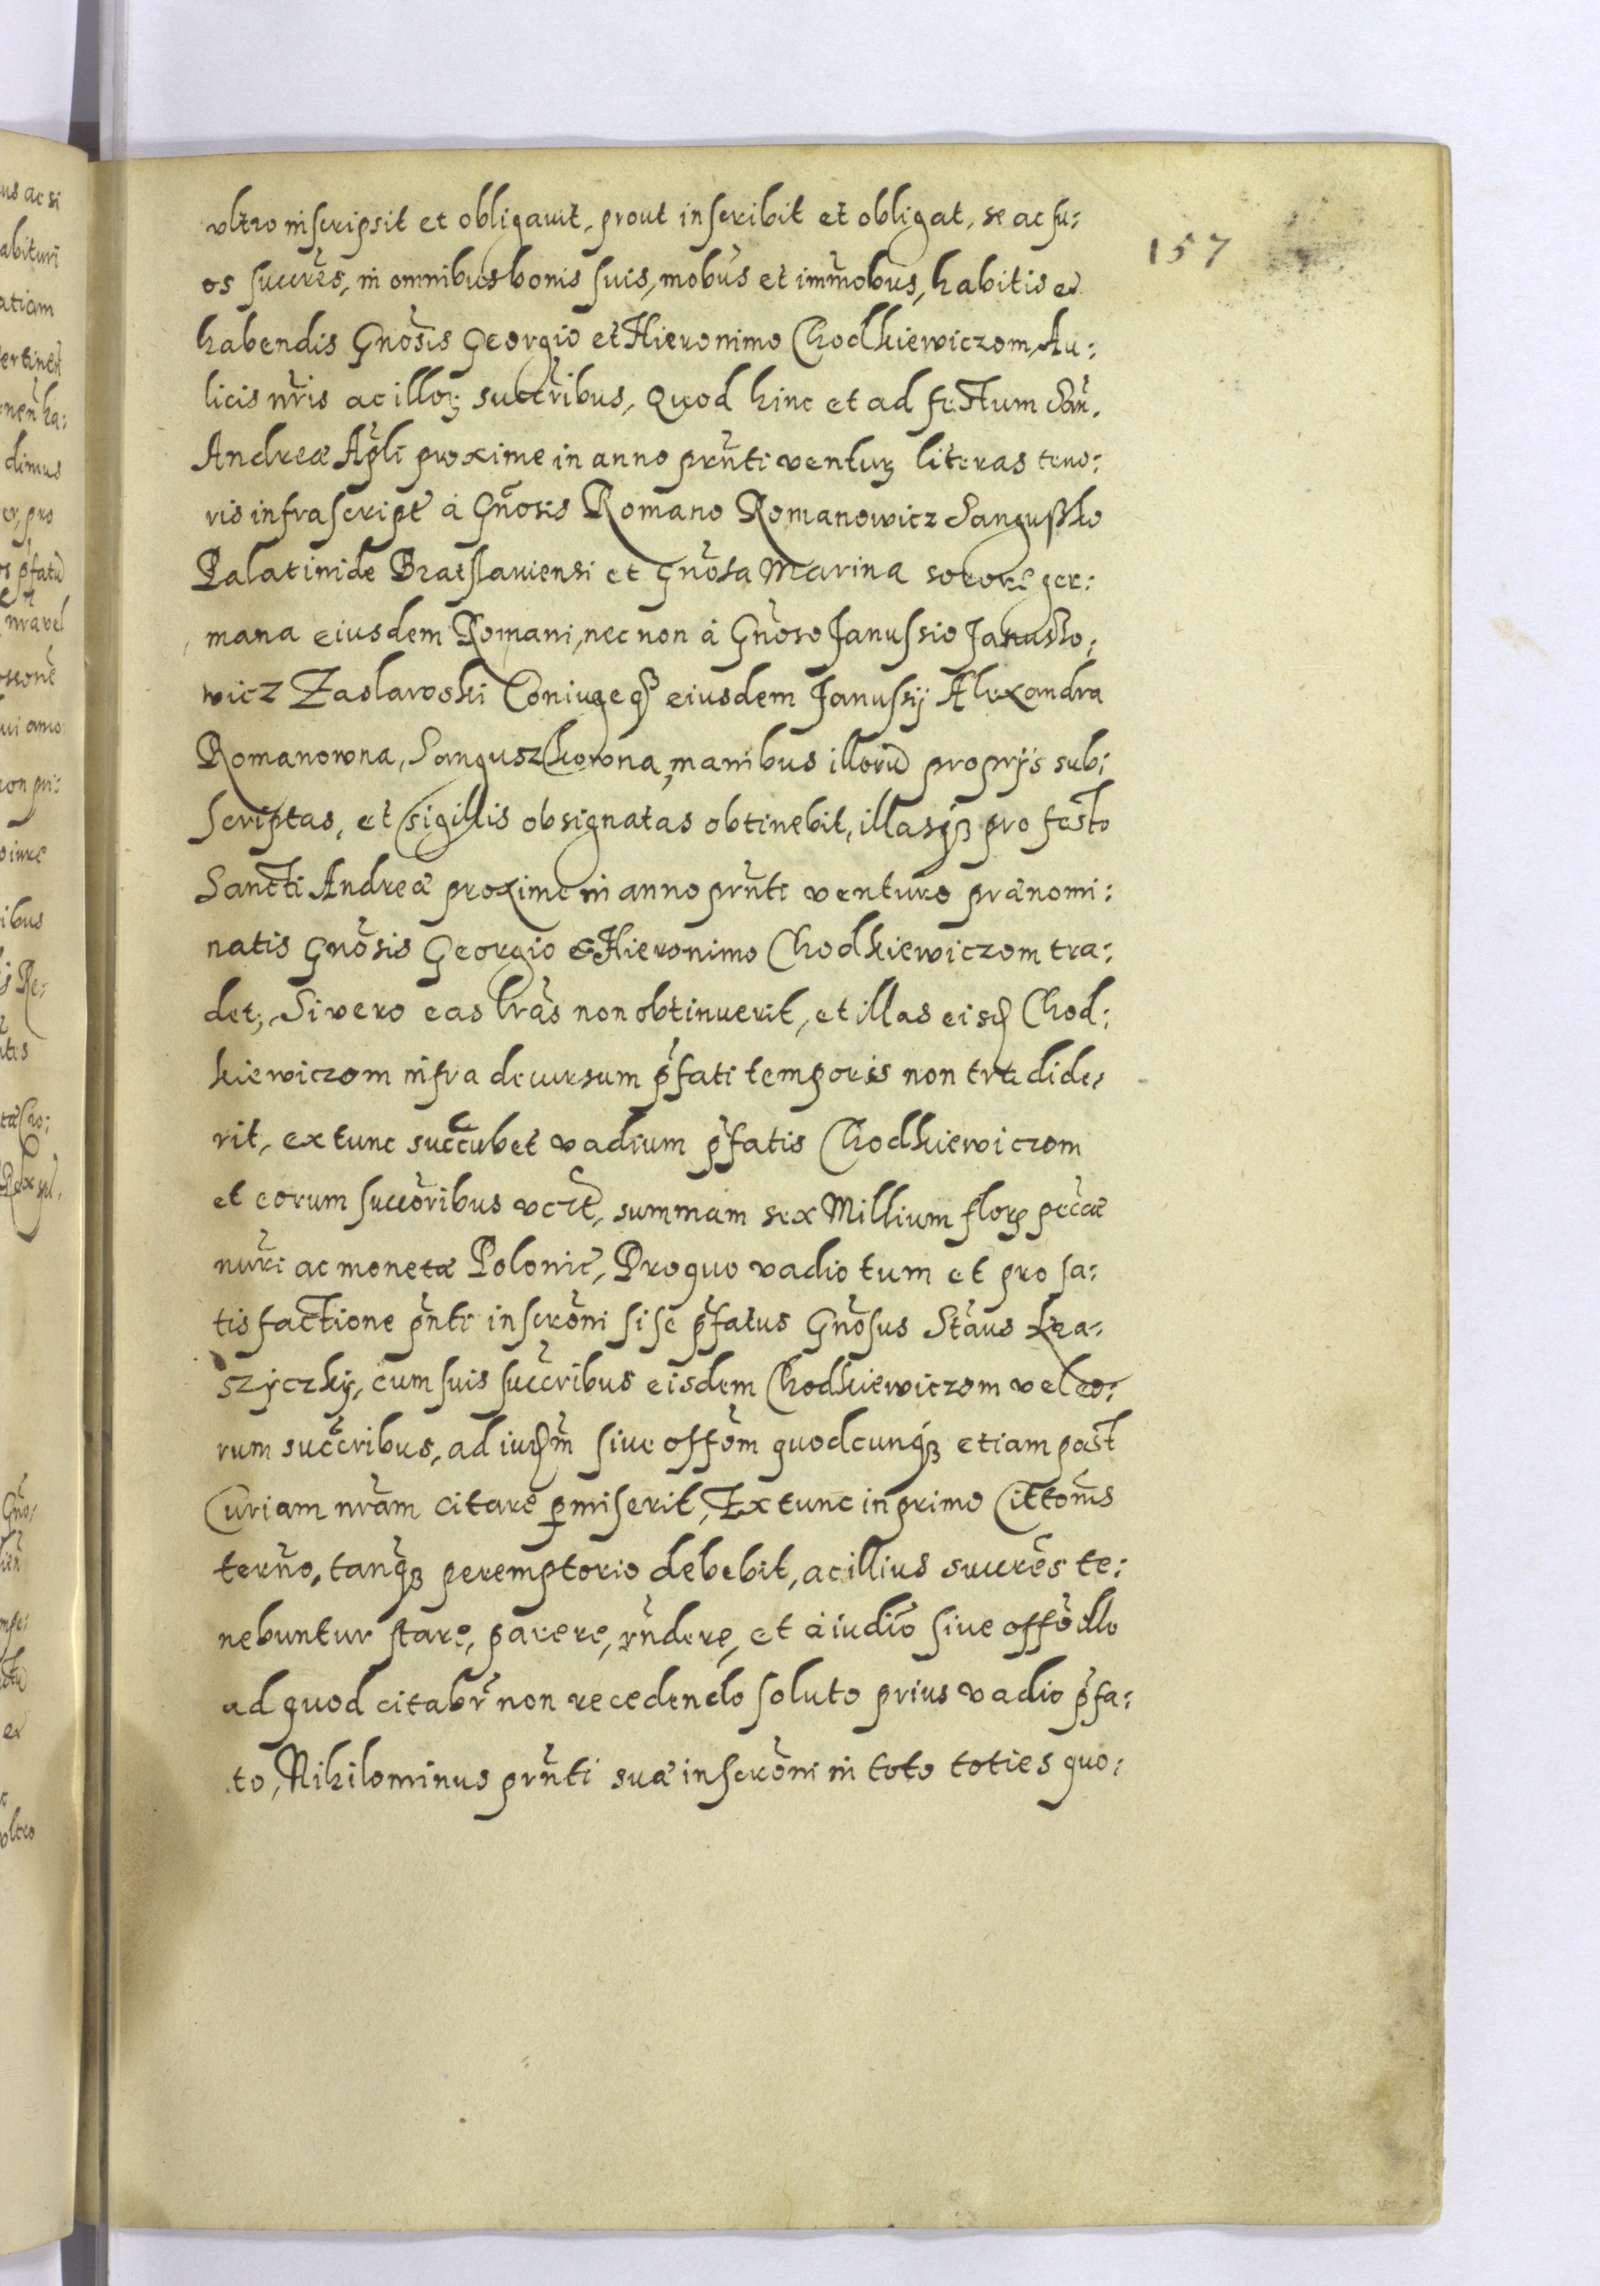 157
vltro inscripsit et obligauit, prout inscribit et obligat, se ac su:
os succres, in omnibus bonis suis, mobus et immobus, habitis et
habendis Gnosis Georgio et Hieronimo Chodkiewiczom, Au:
licis nris ac illor succribus, Quod hinc et ad festum San.
Andreæ Apli proxime in anno prnti ventur literas teno:
ris infrascript à Gnosis Romano Romanowicz Sanguszko
Palatinide Bratslauiensi et Gnosa Marina sorore ger:
mana eiusdem Romani, nec non à Gnoso Janussio Janusso:
wicz Zaslawski Coniugeq eiusdem Janussij Alexandra
Romanowna, Sanguszkowna, manibus illorũ proprijs sub:
scriptas, et sigillis obsignatas obtinebit, illasq pro festo
Sancti Andreæ proxime in anno prnti venturo prænomi:
natis Gnosis Georgio et Hieronimo Chodkiewiczom tra:
det; Si vero eas lras non obtinuerit, et illas eisd Chod:
kiewiczom infra decursum pfati temporis non tradide,
rit, extunc succubet vadium pfatis Chodkiewiczom
et eorum succoribus vczt, summam sex Millium flor peccæ
nuri ac monetæ Polonic, Pro quo vadio tum et pro sa:
tisfactione pnti inscroni si se pfatus Gnosus Staus Kra:
szyczky, cum suis succribus eisdem Chodkiewiczom vel eo:
rum succribus, ad iudm siue offom quodcunq etiam post
Curiam nram citare pmiserit, Extunc in primo Cittonis
terno, tanq peremptorio debebit, ac illius succres te:
nebuntur stare, parere, rndere, et à iudio siue offo illo
ad quod citabr non recedendo soluto prius vadio pfa:
to, Nihilominus prnti suæ inscroni in toto toties quo: